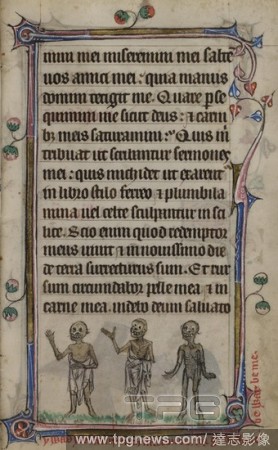 mini mei miseremini mei salte
uos amici mei: quia manus
domini tetigit me. Quare pse
quimini me sicut deus: & carni
bz meis saturamini. Quis m
tribuat ut scribantur sermones
mei: quis michi det ut exarent
in libro stilo ferreo & plumbi la
mina uel celte sculpantur in si
lice. Scio enim quod redemptor
meus uiuit & in nouissimo die
de terra surrecturus sum. Et rur
sum circumdabor pelle mea & in
carne mea uidebo deum saluato
be me
TPG
www.tpgnews.com/ 達志影像